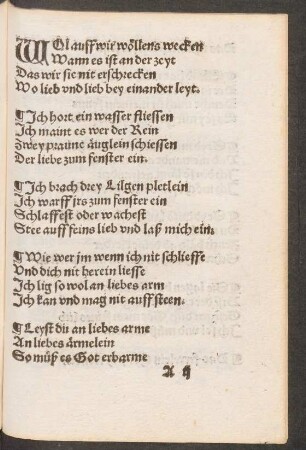 WOl auff wir wöllens wecken
Wann es ist an der zeyt
Das wir sie nit erschrecken
Wo lieb vnd lieb bey einander leyt.
¶ Ich hort ein wasser fliessen
Ich maint es wer der Rein
Zwey praune äuglein schiessen
Der liebe zum fenster ein.
¶ Ich brach drey Lilgen pletlein
Ich warff jrs zum fenster ein
Schlaffest oder wachest
Stee auff feins lieb vnd laß mich ein.
¶ Wie wer jm wenn ich nit schlieffe
Vnd dich nit herein liesse
Ich lig so wol an liebes arm
Ich kan vnd mag nit auff steen.
¶ Leyst du an liebes arme
An liebes ärmelein
So müß es Got erbarme
A ij